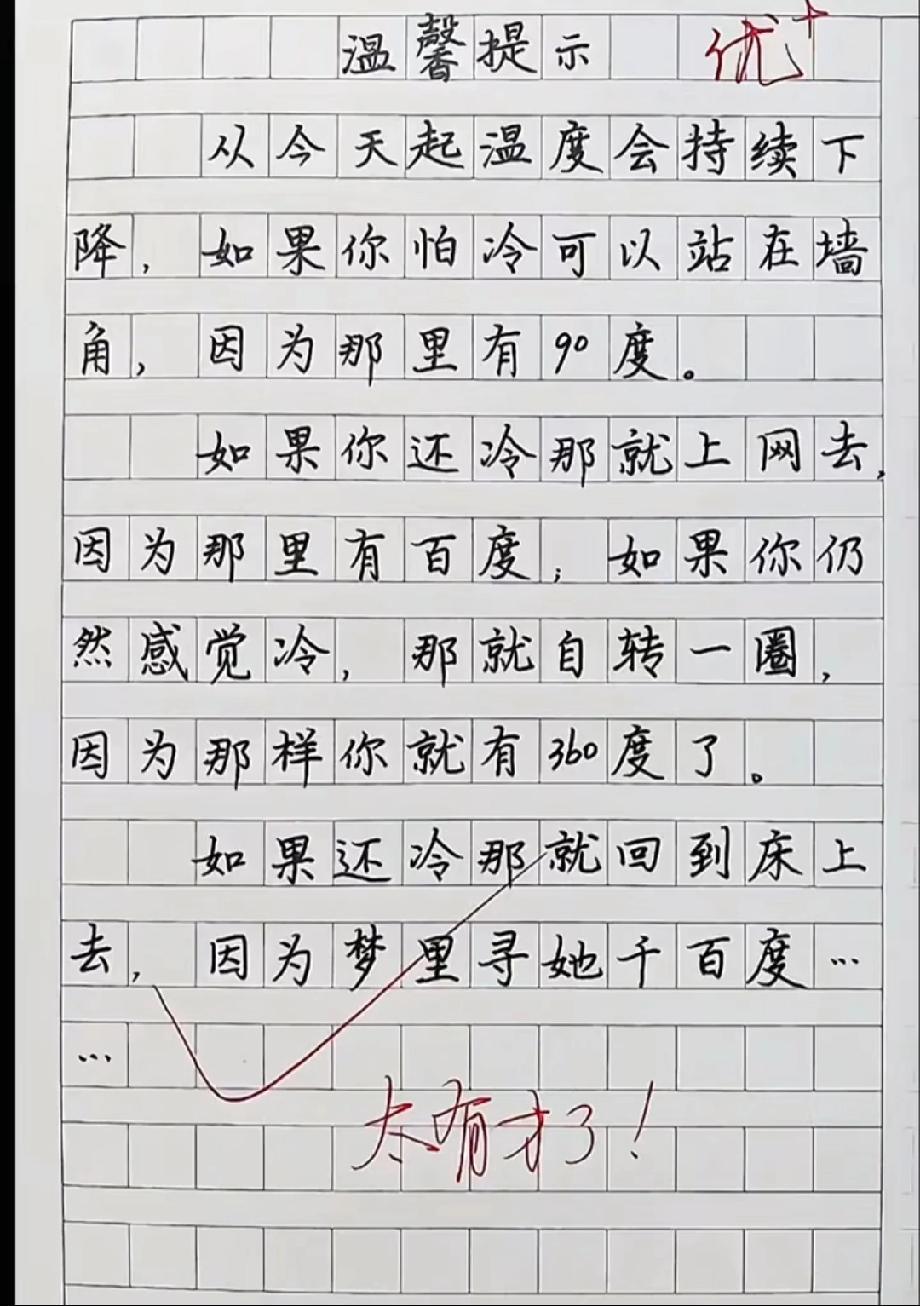 温馨提示 优+
从今天起温度会持续下
降，如果你怕冷可以站在墙
角，因为那里有90度。
如果你还冷那就上网去，
因为那里有百度；如果你仍
然感觉冷，那就自转一圈，
因为那样你就有360度了。
如果还冷那就回到床上
去，因为梦里寻她千百度…
…
太有才了！